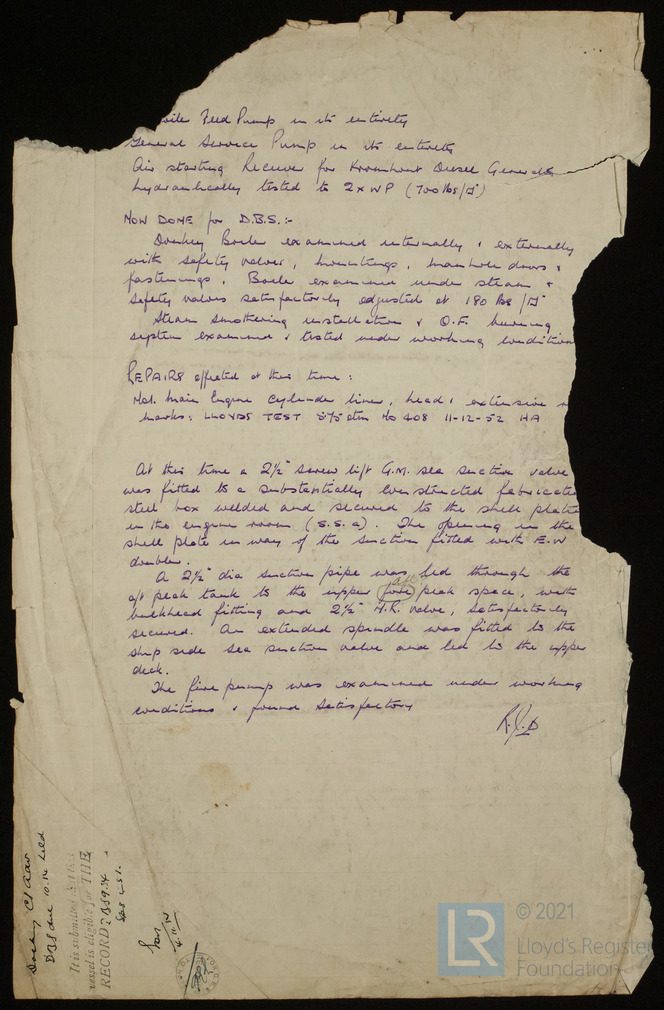 Feed Pump in its entirety
General Service Pump in its entirety
Air starting Receiver for Kromhout Diesel Generator
hydraulically tested to 2 x WP (700 lbs/□")
NOW DONE for D.B.S.:-
Donkey Boiler examined internally & externally
with safety valves, mountings, manhole doors &
fastenings. Boiler examined under steam &
safety valves satisfactorily adjusted at 180 lbs/□"
Steam smothering installation & O.F. burning
system examined & tested under working condition
REPAIRS effected at this time:
No1. Main Engine cylinder liner, head &
marks: LLOYDS TEST No 408 11-12-52 HA
At this time a 2½" screw lift G.M. sea suction valve
was fitted to a substantially constructed fabricated
steel box welded and secured to the shell plate
in the engine room (S.S.a). The opening in the
shell plate in way of the suction fitted with E.W
doubler.
A 2½" dia suction pipe was led through the
aft peak tank to the upper (fore) aft peak space, with
bulkhead fitting and 2½" N.R. valve, satisfactorily
secured. An extended spindle was fitted to the
ship side sea suction valve and led to the upper
deck.
The fire pump was examined under working
conditions & found satisfactory
R.J.D
It is submitted that this
vessel is eligible for THE
RECORD
© 2021
Lloyd's Register
Foundation
LR